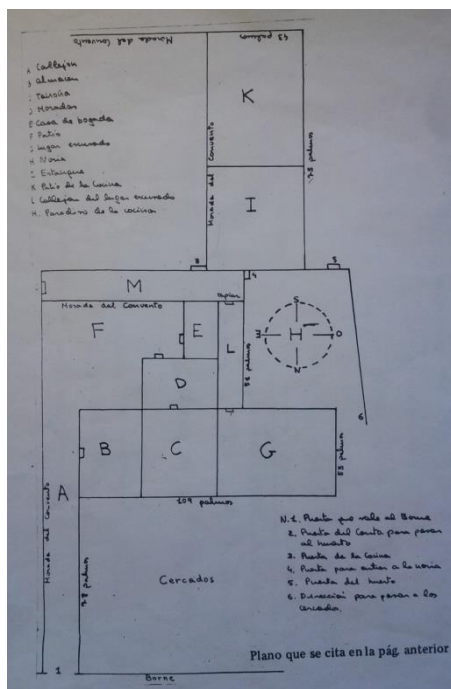 Morada del Convento
63 palmos
A Callejon
B Almacen
Moradas
E Casa de bogada
F Patio
Lugar escusado
H Noria
Estanque
K Patio de la Cocina
L Callejon del lugar escusado
M. Paradizo de la cocina
K
Morada del Convento
78 palmos
I
3
4
5
M
Morada del Convento
tapias
F
E
L
56 palmos
S
E
H
O
N
D
6
B
C
G
53 palmos
A
109 palmos
Morada del Convento
78 palmos
Cercados
N.1. Puerta que sale al Borne
2. Puerta del Conto para pasar
al huerto
3. Puerta de la Cocina
4. Puerta para entrar a la noria
5. Puerta del huerto
6. Direccion para pasar a los
cercados.
Plano que se cita en la pág. anterior
1
Borne